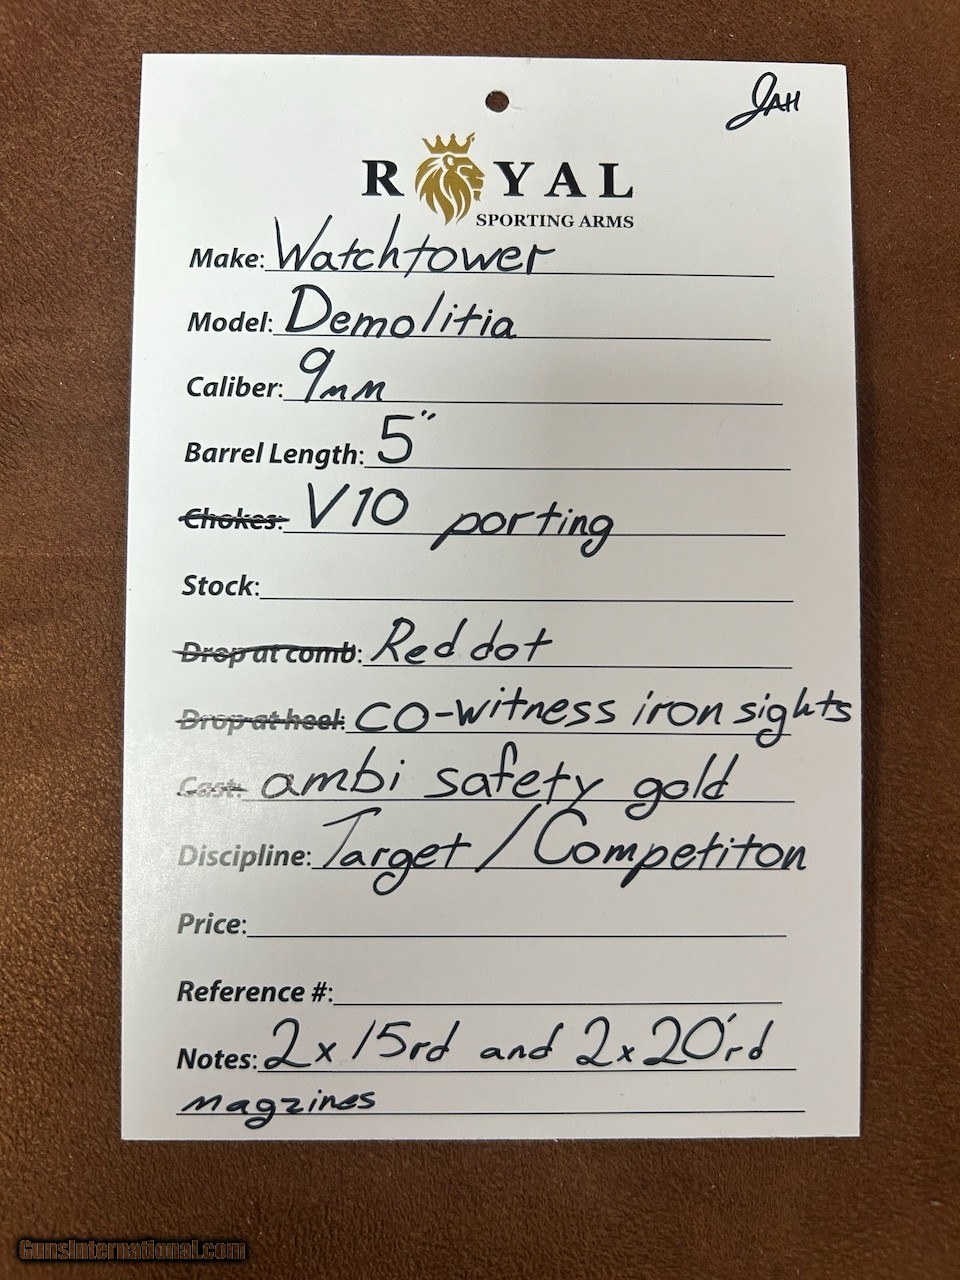 JAH
ROYAL
SPORTING ARMS
Make: Watchtower
Model: Demolitia
Caliber: 9mm
Barrel Length: 5"
Chokes: V10 porting
Stock:
Drop at comb: Red dot
Drop at heel: co-witness iron sights
Cast: ambi safety gold
Discipline: Target / Competiton
Price:
Reference #:
Notes: 2x 15rd and 2x 20'rd
magzines
GunsInternational.com